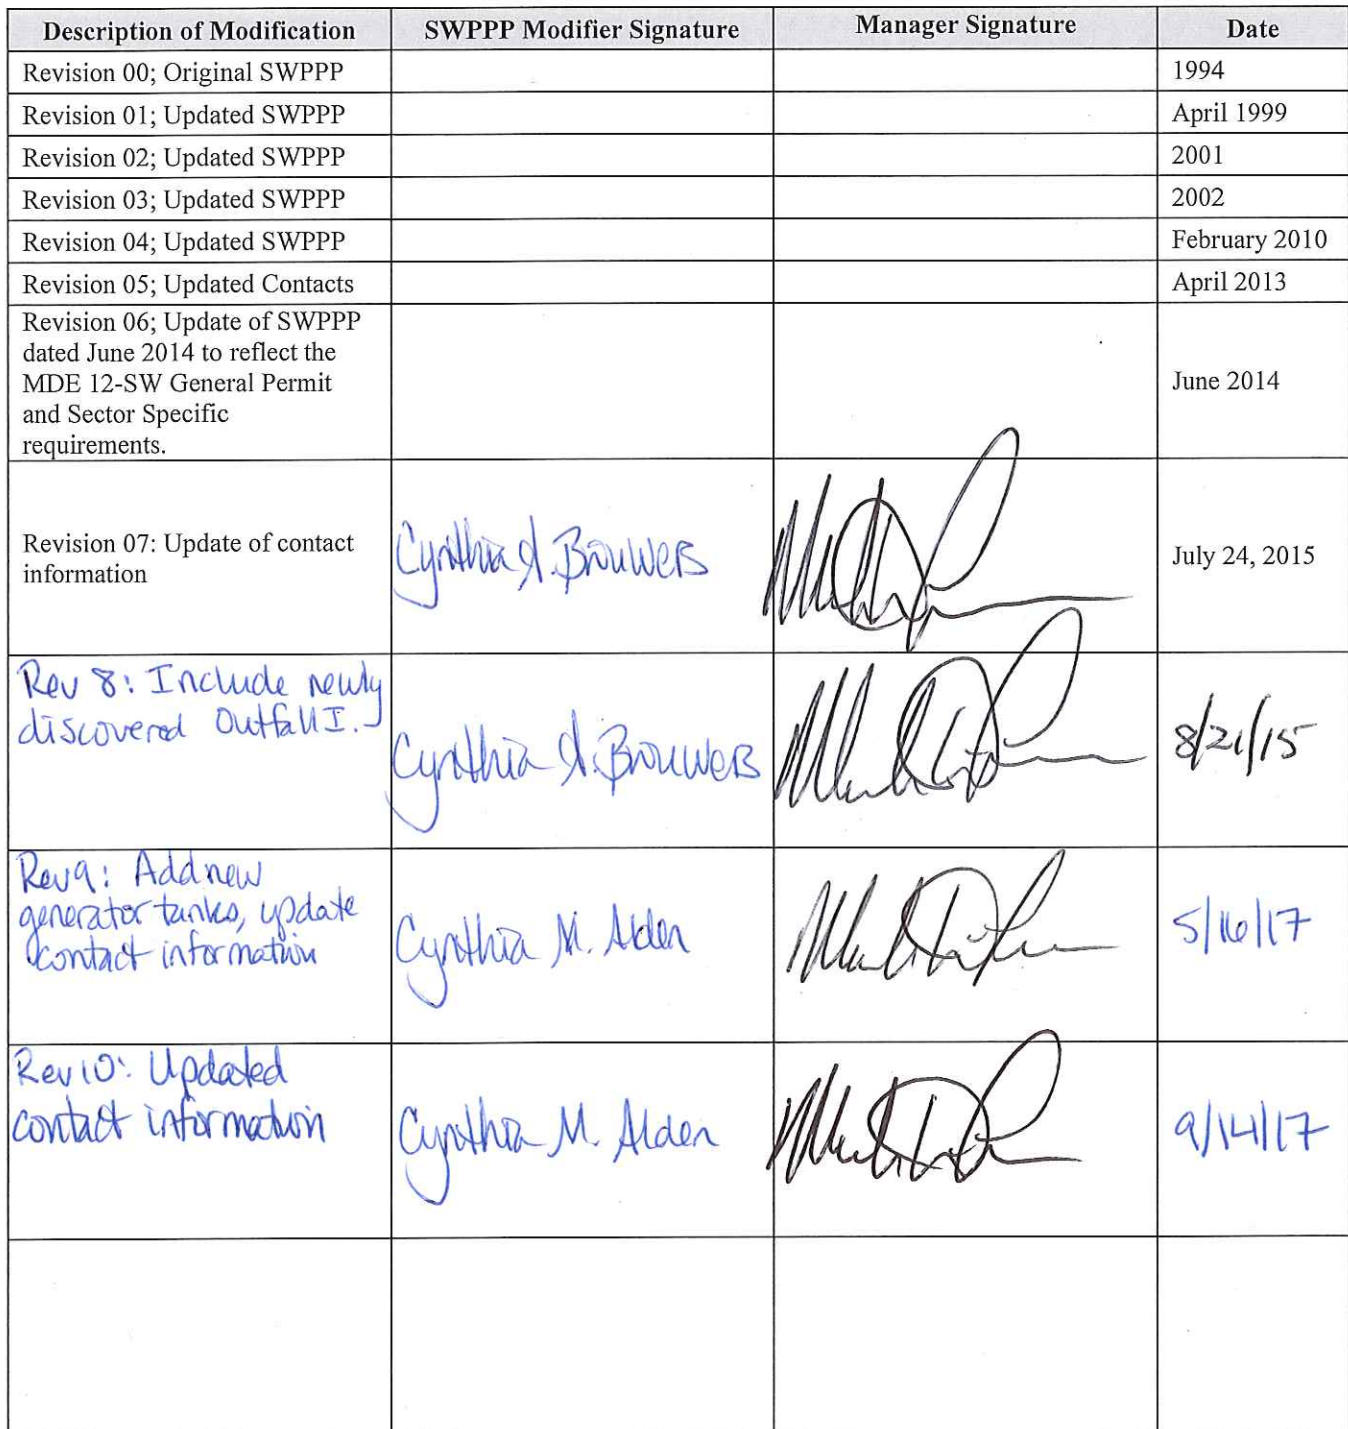 Description of Modification SWPPP Modifier Signature Manager Signature Date
Revision 00; Original SWPPP 1994
Revision 01; Updated SWPPP April 1999
Revision 02; Updated SWPPP 2001
Revision 03; Updated SWPPP 2002
Revision 04; Updated SWPPP February 2010
Revision 05; Updated Contacts April 2013
Revision 06; Update of SWPPP
dated June 2014 to reflect the
MDE 12-SW General Permit
and Sector Specific
requirements.
June 2014
Revision 07: Update of contact
information
Cynthia A. Brouwers
July 24, 2015
Rev 8: Include newly
discovered Outfall I.
Cynthia A. Brouwers
8/21/15
Rev 9: Add new
generator tanks, update
contact information
Cynthia M. Alden
5/16/17
Rev 10: Updated
contact information
Cynthia M. Alden
9/14/17